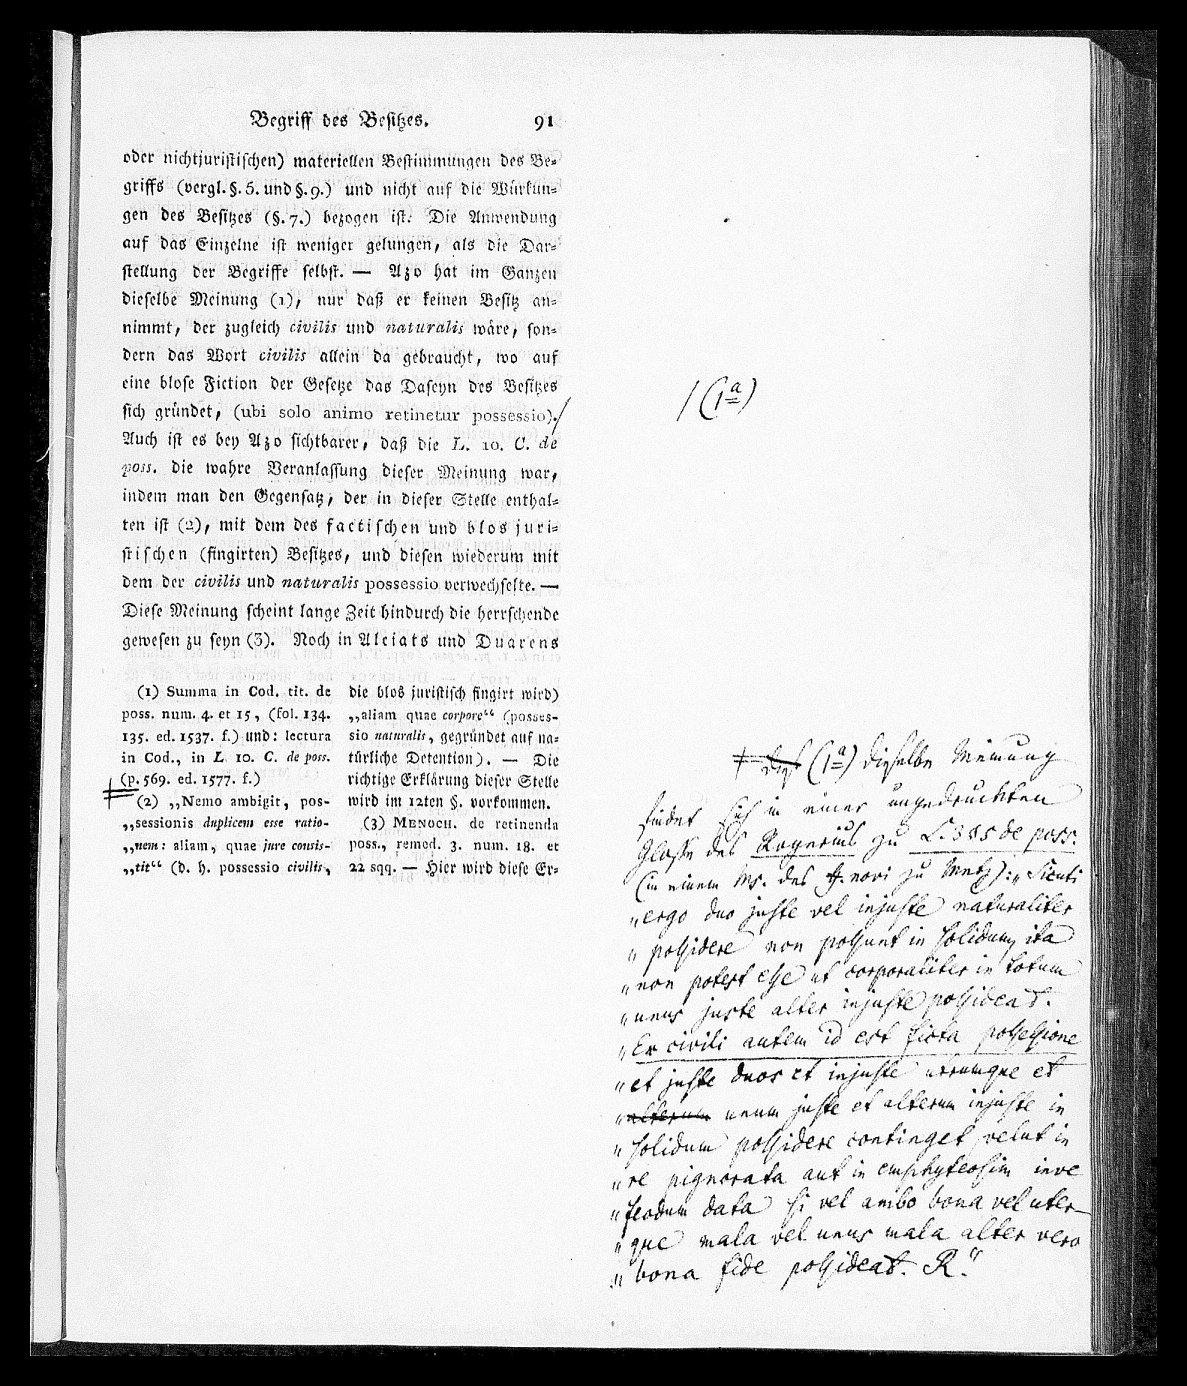 Begriff des Besitzes. 91
oder nichtjuristischen) materiellen Bestimmungen des Be-
griffs (vergl. §. 5. und §. 9.) und nicht auf die Würkun-
gen des Besitzes (§. 7.) bezogen ist. Die Anwendung
auf das Einzelne ist weniger gelungen, als die Dar-
stellung der Begriffe selbst. — Azo hat im Ganzen
dieselbe Meinung (1), nur daß er keinen Besitz an-
nimmt, der zugleich civilis und naturalis wäre, son-
dern das Wort civilis allein da gebraucht, wo auf
eine blose Fiction der Gesetze das Daseyn des Besitzes
sich gründet, (ubi solo animo retinetur possessio)./
Auch ist es bey Azo sichtbarer, daß die L. 10. C. de
poss. die wahre Veranlassung dieser Meinung war,
indem man den Gegensatz, der in dieser Stelle enthal-
ten ist (2), mit dem des factischen und blos juri-
stischen (fingirten) Besitzes, und diesen wiederum mit
dem der civilis und naturalis possessio verwechselte. —
Diese Meinung scheint lange Zeit hindurch die herrschende
gewesen zu seyn (3). Noch in Alciats und Duarens
(1) Summa in Cod. tit. de
poss. num. 4. et 15, (fol. 134.
135. ed. 1537. f.) und: lectura
in Cod., in L. 10. C. de poss.
(p. 569. ed. 1577. f.)
(2) „Nemo ambigit, pos-
„sessionis duplicem esse ratio-
„nem: aliam, quae jure consis-
„tit“ (d. h. possessio civilis,
die blos juristisch fingirt wird)
„aliam quae corpore“ (posses-
sio naturalis, gegründet auf na-
türliche Detention). — Die
richtige Erklärung dieser Stelle
wird im 12ten §. vorkommen.
(3) MENOCH. de retinenda
poss., remed. 3. num. 18. et
22 sqq. — Hier wird diese Er-
/ (1a)
(1a) dieselbe Meinung
findet sich in einer ungedruckten
Glosse des Rogerius zu L. 3 § 5 de poss.
(in einem Ms. des ff. novi zu Metz): „Sicuti
„ergo duo juste vel injuste naturaliter
„possidere non possunt in solidum, ita
„non potest esse ut corporaliter in totum
„unus juste alter injuste possideat.
„Ex civili autem id est ficta possessione
„et juste duos et injuste utrumque et
„alterum unum juste et alterum injuste in
„solidum possidere continget velut in
„re pignorata aut in emphyteosim inve
„feodum data si vel ambo bona vel uter-
„que mala vel unus mala alter vero
„bona fide possideat. R.“